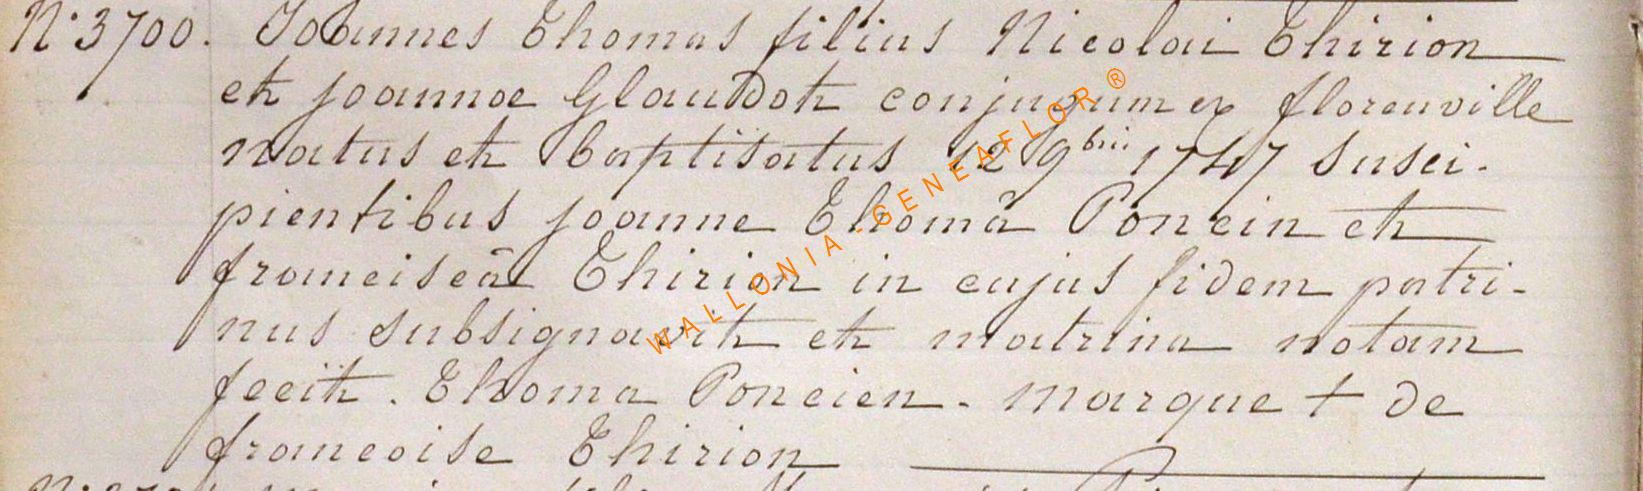 N° 3700. Joannes Thomas filius Nicolai Thirion
et joannae Glaudot conjugum ex florenville
natus et baptisatus 12 9brii 1747 susci-
pientibus joanne Thomâ Poncin et
franciscâ Thirion in cujus fidem patri-
nus subsignavit et matrina notam
fecit. Thoma Poncien. marque + de
francoise Thirion
WALLONIA-GENEAFLOR®